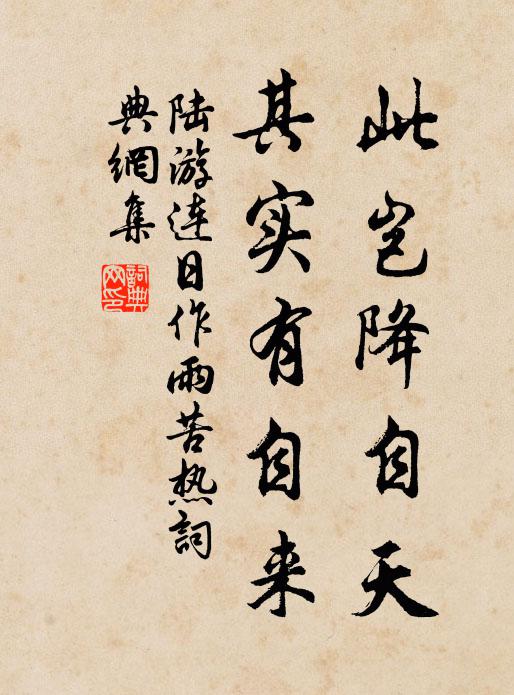 此岂降自天
其实有自来
陆游连日作雨苦热詞
典網集
詞典网印